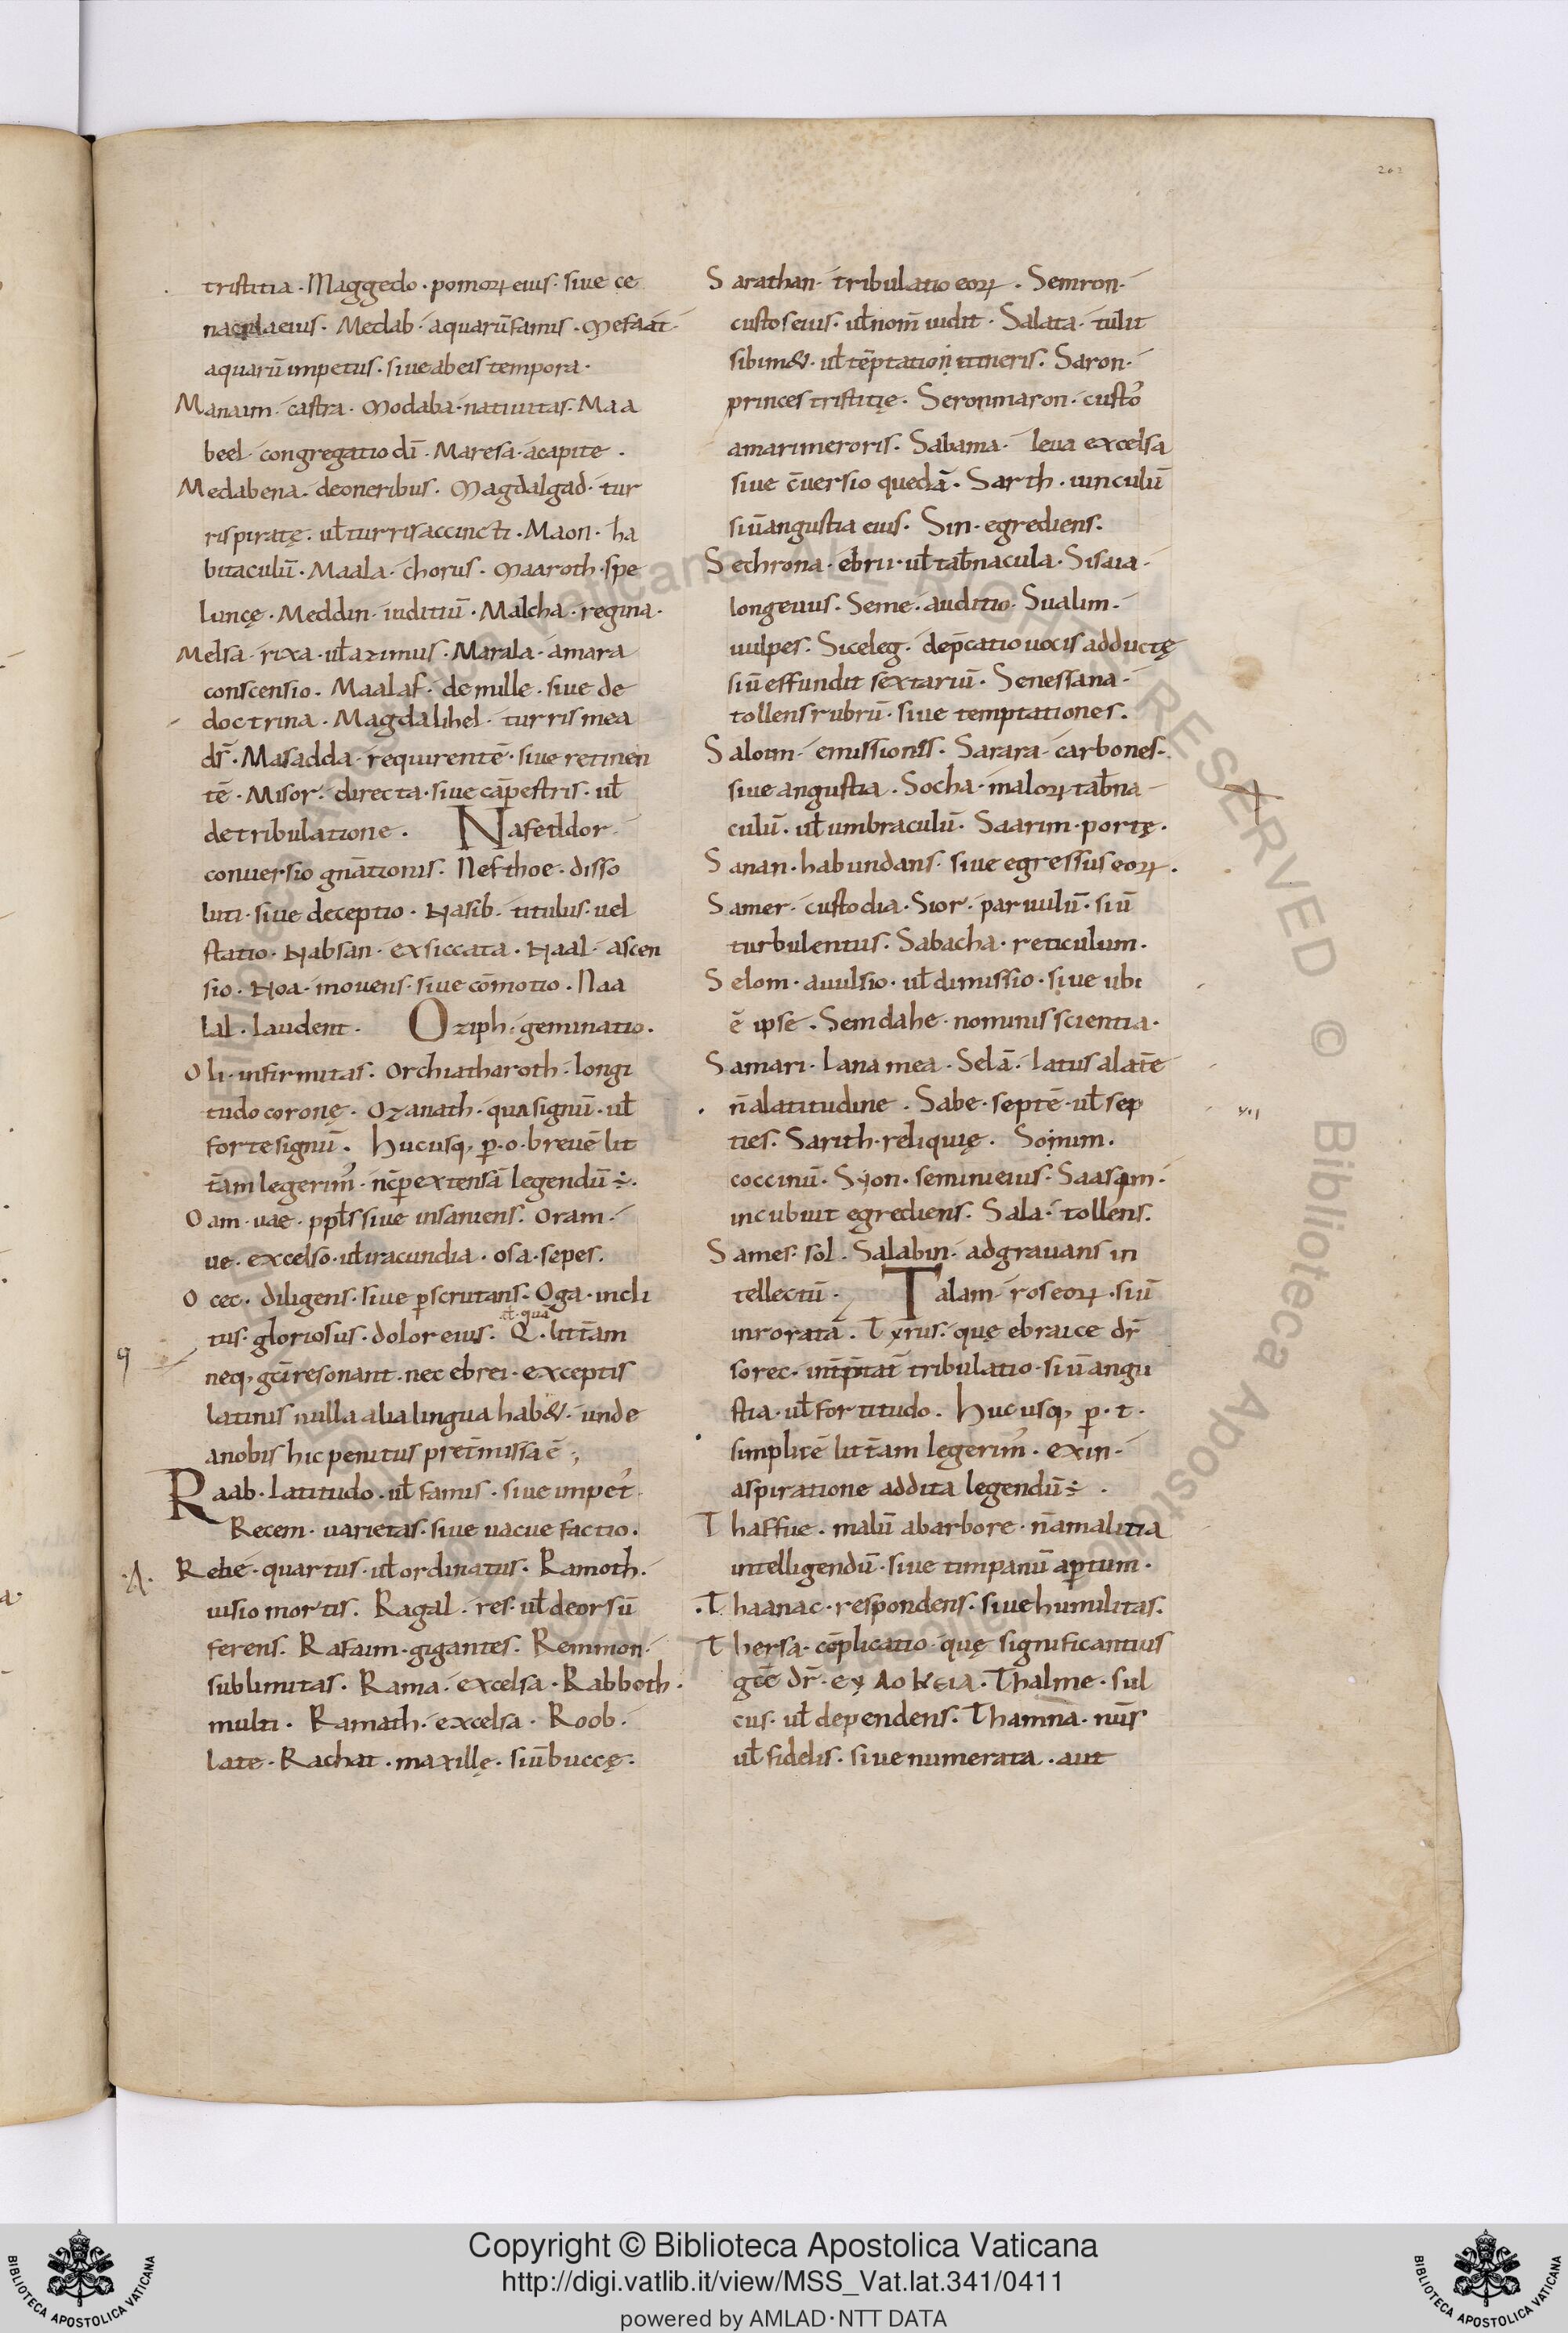 202
tristitia · Maggedo · pomoꝝ eius · siue ce
naculaeius · Medab · aquarū famis · Mefaat ·
aquarū impetus · siue abeis tempora ·
Manaim · castra · Modaba · natiuitas · Maa
beel · congregatio dī · Maresa · acapite ·
Medabena · deoneribus · Magdalgad · tur
ris piratę · ul̄ turris accincti · Maon · ha
bitaculū · Maala · chorus · Maaroth · spe
luncę · Meddin · iuditiū · Malcha · regina ·
Melsa · rixa · ul̄ azimus · Marala · amara
conscensio · Maalaf · de mille · siue de
doctrina · Magdalihel · turris mea
ds̄ · Masadda · requirentē · siue retinen
tē · Misor · directa · siue cāpestris · ul̄
detribulatione · Nafeddor ·
conuersio gnātionis · Nefthoe · disso
luti · siue deceptio · Nasib · titulus · uel
statio · Nabsan · exsiccata · Naal · ascen
sio · Noa · mouens · siue cōmotio · Naa
lal · laudent · Oziph · geminatio ·
Oli · infirmitas · Orchiatharoth · longi
tudo coronę · Ozanath · quasignū · ul̄
forte signū · hucusq; p · o · breuē lit
tām legerim᾽ · nc̄ pextensā legendū ÷ ·
Oam · uae · ppl̄s siue insaniens · Oram ·
ue · excelso · ul̄ iracundia · osa · sepes ·
Ocec · diligens · siue pscrutans · Oga · incli
tus · gloriosus · dolor eius · Q · littām
neq; gc̄i resonant · nec ebrei · exceptis
latinis nulla alia lingua hab& · unde
anobis hic penitus pretmissa ē ;
Raab · latitudo · ul̄ famis · siue impet᾽
Recem · uarietas · siue uacue factio ·
·A· Rebe · quartus · ul̄ ordinatus · Ramoth ·
uisio mortis · Ragal · res · ul̄ deorsū
ferens · Rafaim · gigantes · Remmon ·
sublimitas · Rama · excelsa · Rabboth ·
multi · Ramath · excelsa · Roob ·
late · Rachat · maxillę · siū buccę ·
Sarathan · tribulatio eoꝝ · Semron ·
custos eius · ul̄ nom̄ uidit · Salata · tulit
sibim& · ul̄ tēptation itineris · Saron ·
princes tristitię · Seronmaron · custo᾽
amarimeroris · Sabama · leua excelsa
siue c̄uersio quedā · Sarth · uinculū
siū angustia eius · Sin · egrediens ·
Sechrona · ebrii · ul̄ tab̄nacula · Sisaia ·
longeuus · Seme · auditio · Sualim ·
uulpes · Siceleg · dep̄catio uocis adductę
siū effundit sextariū · Senessana ·
tollens rubrū · siue temptationes ·
Saloim · emissiones · Sarara · carbones ·
siue angustia · Socha · maloꝝ tab̄na
culū · ul̄ umbraculū · Saarim · portę ·
Sanan · habundans · siue egressus eoꝝ ·
Samer · custodia · Sior · paruulū · siū
turbulentus · Sabacha · reticulum ·
Selom · auulsio · ul̄ dimissio · siue ubi
ē ipse · Semdahe · nominis scientia ·
Samari · lana mea · Selā · latus alatē
n̄ alatitudine · Sabe · septē · ul̄ sep
ties · Sarith · reliquię · Sonim ·
coccinū · Syon · seminieius · Saasam ·
incubuit egrediens · Sala · tollens ·
Sames · sol · Salabin · adgrauans in
tellectū · Talam · ros eoꝝ · siū
inrorata · Tyrus · quę ebraice dr̄
sorec · int̄p̄tat᾽ tribulatio · siū angu
stia · ul̄ fortitudo · hucusq; p · t ·
simplicē littām legerim᾽ · exin ·
aspiratione addita legendū ÷ ·
Thaffue · malū abarbore · n̄ amalitia
intelligendū · siue timpanū aptum ·
Thaanac · respondens · siue humilitas ·
Thersa · cōplicatio · quę significantius
gc̄e dr̄ · ΕΥΔΟΚΕΙΑ · Thalme · sul
cus · ul̄ dependens · Thamna · num̄s
ul̄ fidelis · siue numerata · aut
Copyright © Biblioteca Apostolica Vaticana
http://digi.vatlib.it/view/MSS_Vat.lat.341/0411
powered by AMLAD·NTT DATA
BIBLIOTECA APOSTOLICA VATICANA
BIBLIOTECA APOSTOLICA VATICANA